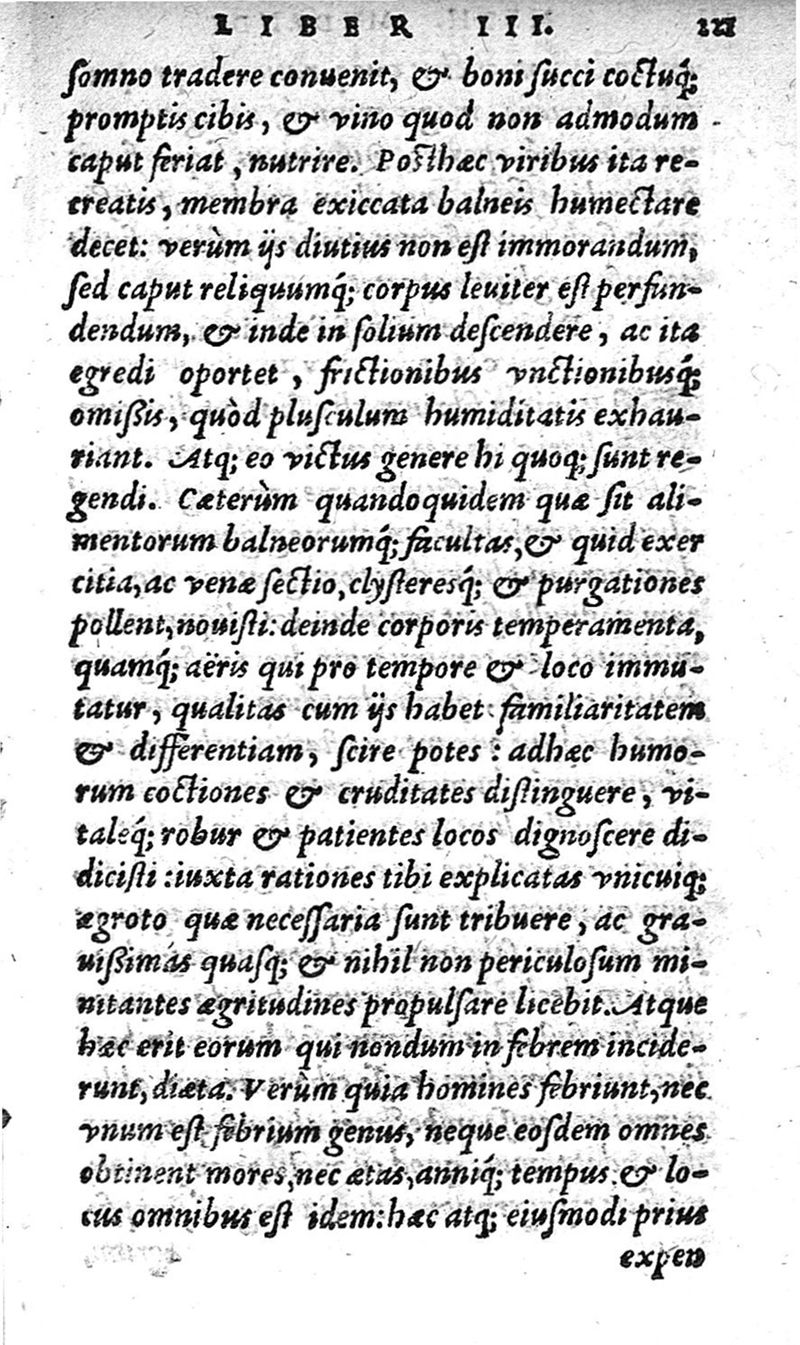 LIBER III. 221
ſomno tradere conuenit, & boni ſucci coctuq́;
promptis cibis, & vino quod non admodum
caput feriat, nutrire. Poſthæc viribus ita re-
creatis, membra exiccata balneis humectare
decet: verùm ijs diutius non eſt immorandum,
ſed caput reliquumq́; corpus leuiter eſt perfun-
dendum, & inde in ſolium deſcendere, ac ita
egredi oportet, frictionibus vnctionibusq́;
omiſsis, quòd pluſculum humiditatis exhau-
riant. Atq; eo victus genere hi quoq; ſunt re-
gendi. Cæterùm quandoquidem quæ ſit ali-
mentorum balneorumq́; facultas, & quid exer
citia, ac venæ ſectio, clyſteresq́; & purgationes
pollent, nouiſti: deinde corporis temperamenta,
quamq́; aëris qui pro tempore & loco immu-
tatur, qualitas cum ijs habet familiaritatem
& differentiam, ſcire potes: adhæc humo-
rum coctiones & cruditates diſtinguere, vi-
taleq́; robur & patientes locos dignoſcere di-
diciſti: iuxta rationes tibi explicatas vnicuiq;
ægroto quæ neceſſaria ſunt tribuere, ac gra-
uiſsimas quaſq; & nihil non periculoſum mi-
nitantes ægritudines propulſare licebit. Atque
hæc erit eorum qui nondum in febrem incide-
runt, diæta. Verùm quia homines febriunt, nec
vnum eſt febrium genus, neque eoſdem omnes
obtinent mores, nec ætas, anniq́; tempus & lo-
cus omnibus eſt idem: hæc atq; eiuſmodi prius
expen